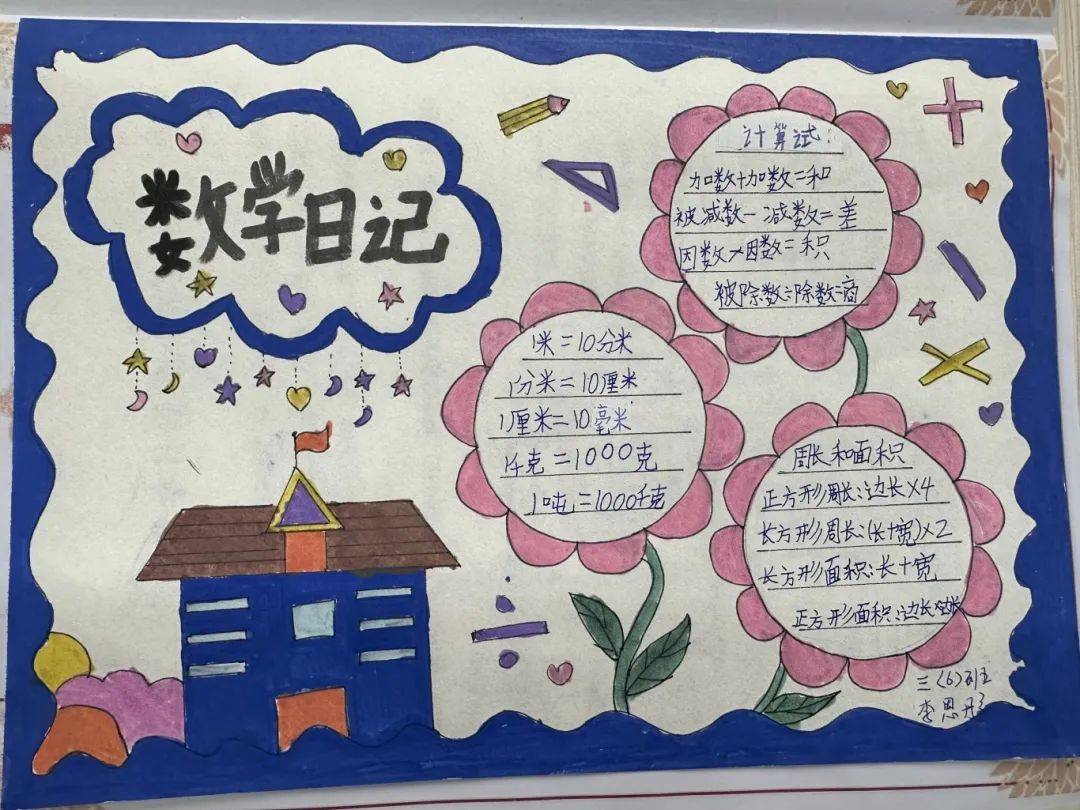 数学日记
计算试:
加数+加数=和
被减数-减数=差
因数×因数=积
被除数÷除数=商
1米=10分米
1分米=10厘米
1厘米=10毫米
1千克=1000克
1吨=1000千克
周长和面积
正方形周长:边长×4
长方形周长:(长+宽)×2
长方形面积:长+宽
正方形面积:边长×边长
三(6)班
李思彤